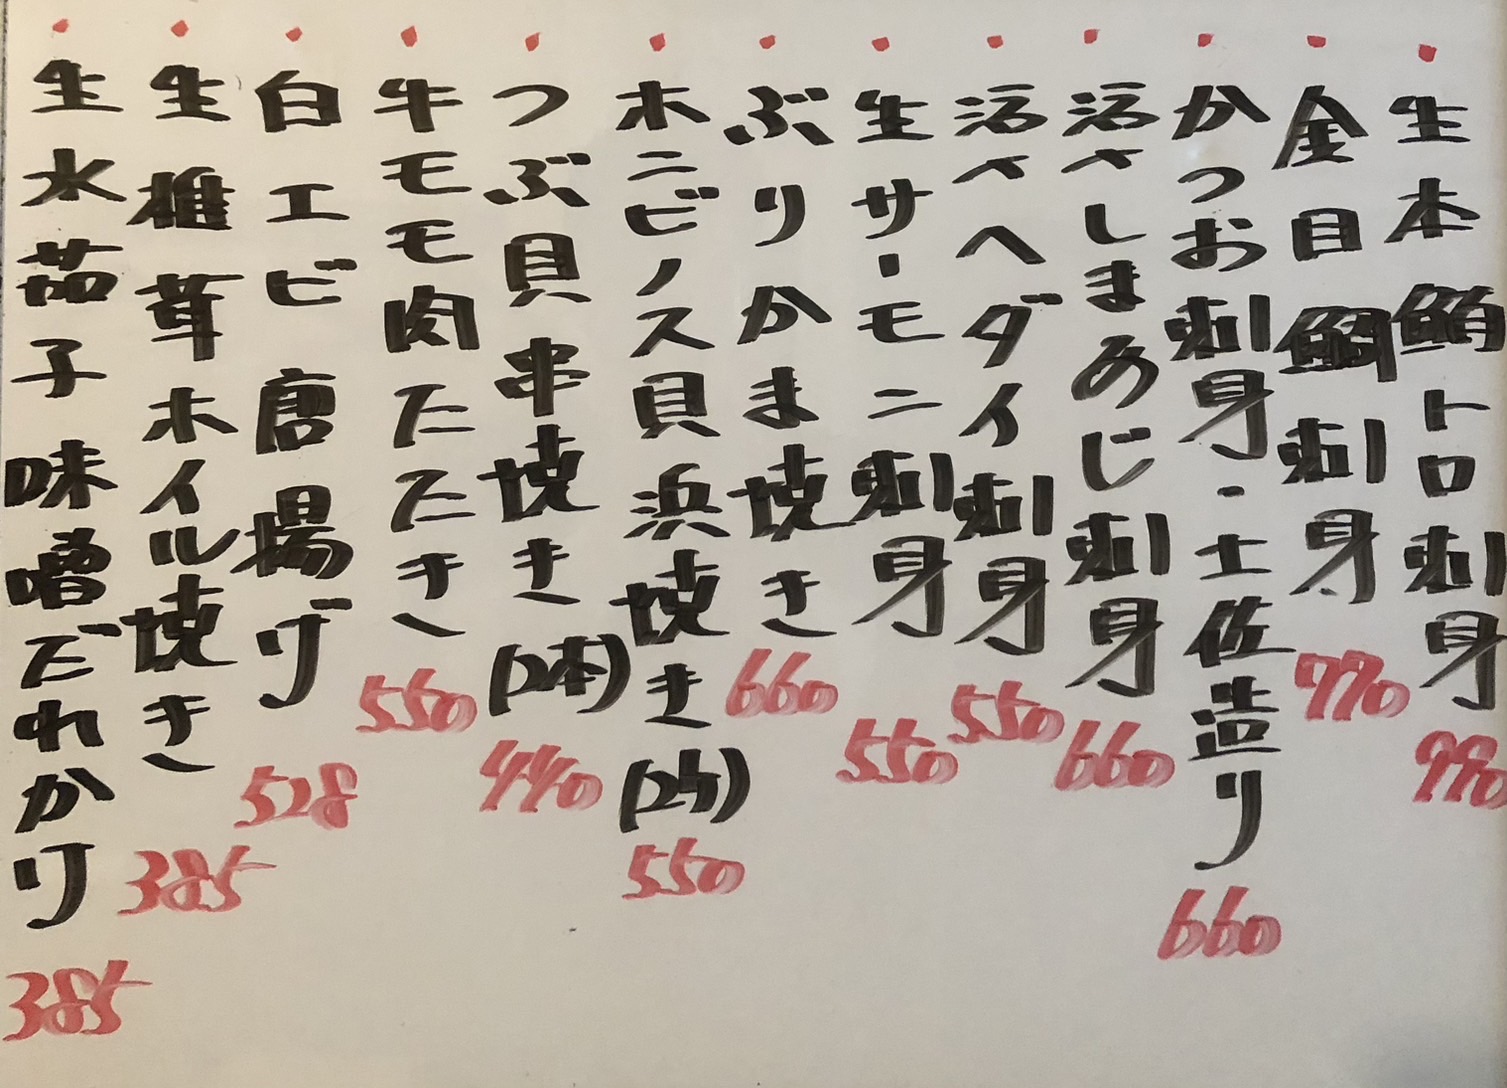 生本鮪トロ刺身 990
金目鯛刺身 770
かつお刺身・土佐造り 660
活〆しまあじ刺身 660
活〆ヘダイ刺身 550
生サーモン刺身 550
ぶりかま焼き 660
ホンビノス貝浜焼き(2ヶ) 550
つぶ貝串焼き(2本) 440
牛モモ肉たたき 550
白エビ唐揚げ 528
生椎茸ホイル焼き 385
生水茄子味噌だれかけ 385